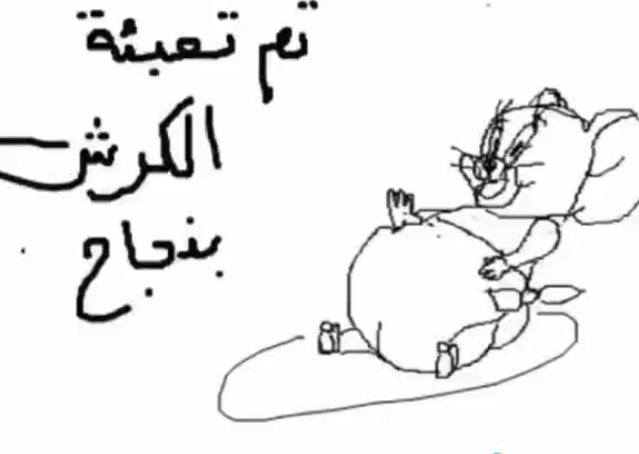 تم تعبئة
الكرش
بنجاح